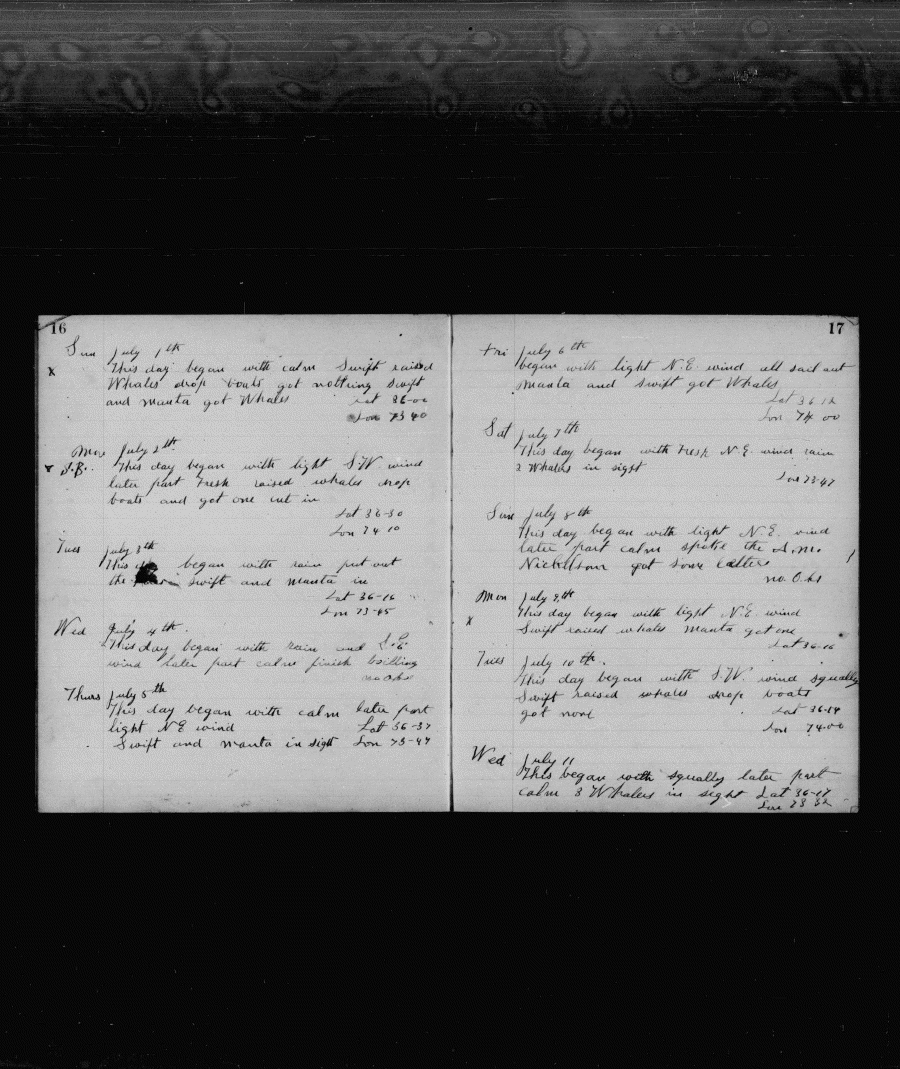 16
Sun July 1th
This day began with calm Swift raised
X
Whales drop boats got nothing Swift
and Manta got Whales Lat 36-00
Lon 73 40
Mon July 2th
S.B. This day began with light S.W. wind
later part Fresh raised whales drop
boats and got one cut in
Lat 36-30
Lon 74-10
Tues July 3th
This began with rain put out
the Swift and Manta in
Lat 36-16
Lon 73-45
Wed July 4th.
This day began with rain and S.E.
wind later part calm finish boilling
no Obs
Thurs July 5th
This day began with calm later part
light N E wind Lat 36-37
Swift and Manta in sight Lon 73-47
17
Fri July 6th
began with light N.E. wind all sail out
Manta and Swift got Whales
Lat 36 12
Lon 74 00
Sat July 7th
This day began with Fresh N.E. wind rain
2 Whalers in sight
Lon 73-47
Sun July 8th
This day began with light N.E. wind
later part calm spoke the A.M.
Nickelson got some letters
no Obs
Mon July 9th
This day began with light N.E. wind
X
Swift raised whales Manta got one
Lat 36-16
Tues July 10th.
This day began with S.W. wind squally
Swift raised whales drop boats
got none Lat 36-14
Lon 74-00
Wed July 11
This began with squally later part
calm 3 Whalers in sight Lat 36-17
Lon 73 52